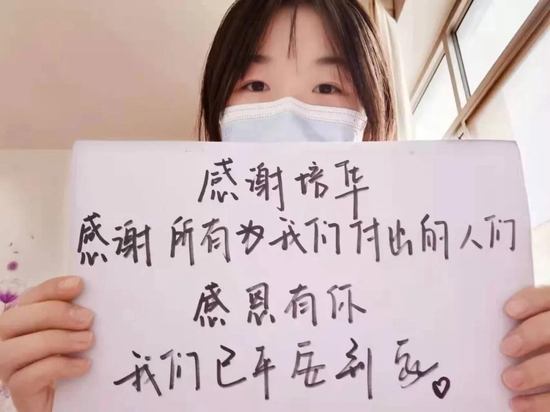 感谢培华
感谢所有为我们付出的人们
感恩有你
我们已平安到家